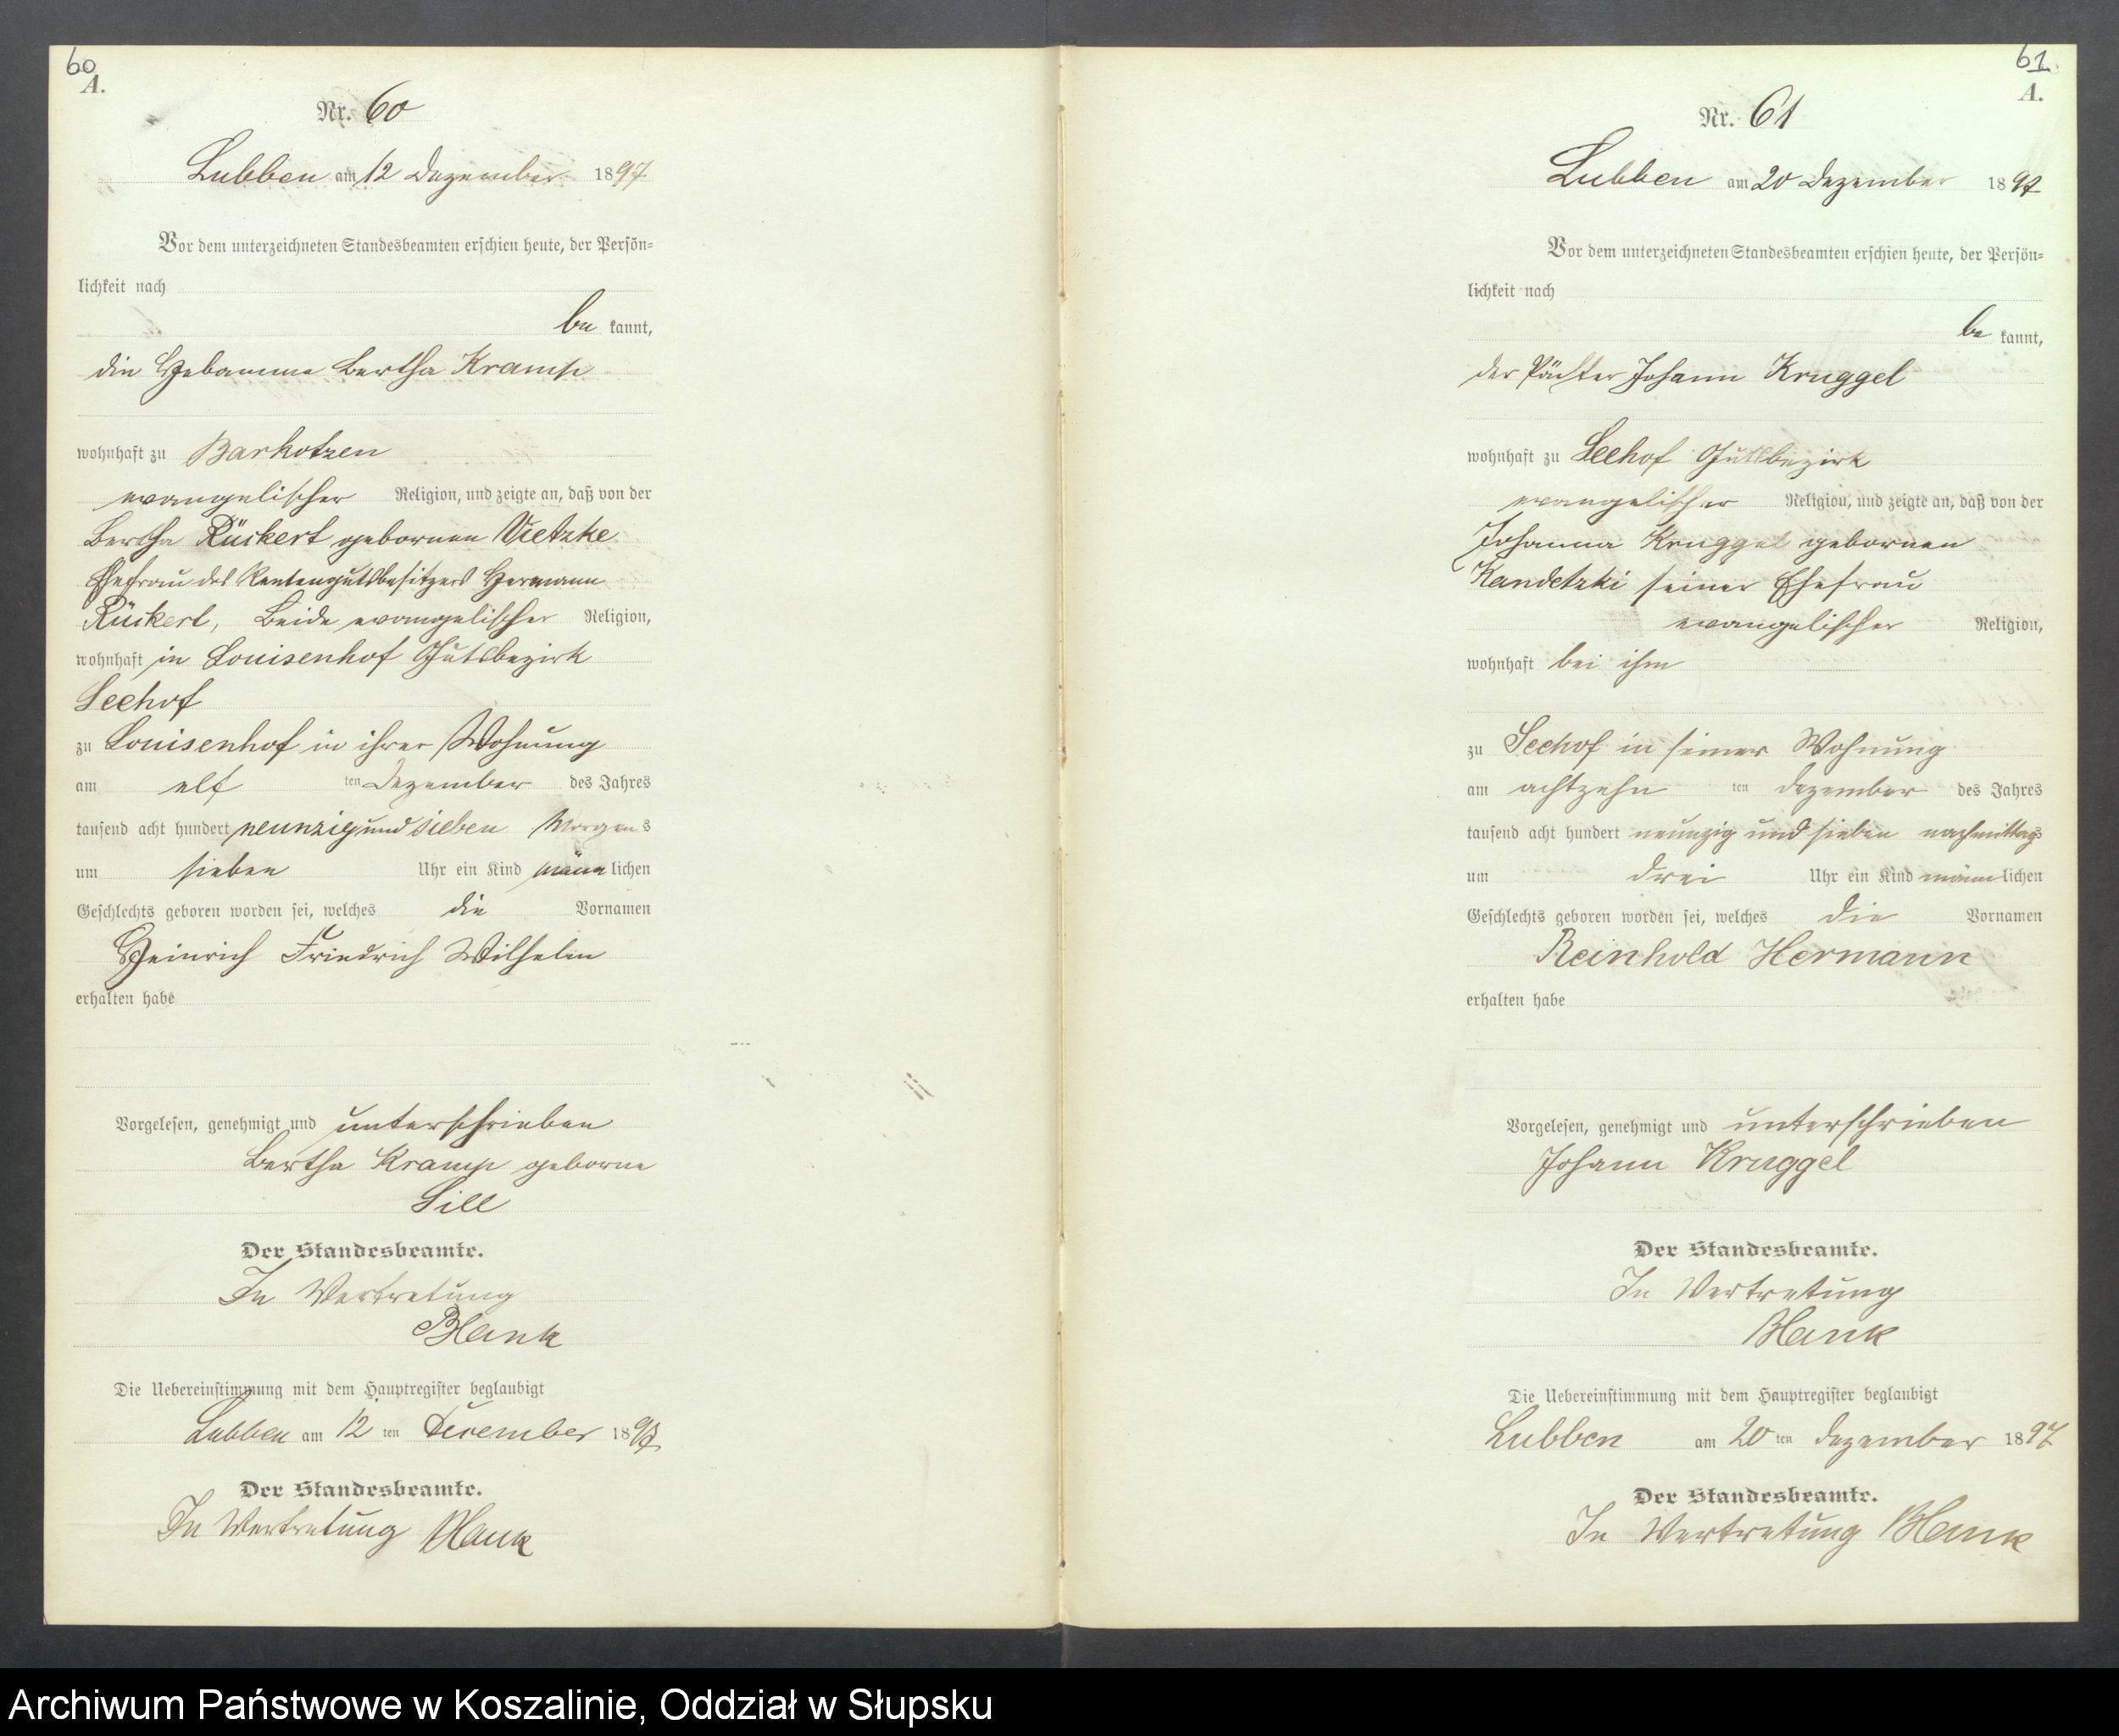 60
A.
Nr. 60
Lubben am 12 Dezember 1897
Vor dem unterzeichneten Standesbeamten erschien heute, der Persön=
lichkeit nach
be kannt,
die Hebamme Bertha Kramp
wohnhaft zu Barkotzen
evangelischer Religion, und zeigte an, daß von der
Bertha Rückert gebornen Vietzke
Ehefrau des Rentengutsbesitzers Hermann
Rückert, Beide evangelischer Religion,
wohnhaft in Louisenhof Gutsbezirk
Seehof
zu Louisenhof in ihrer Wohnung
am elf ten Dezember des Jahres
tausend acht hundert neunzig und sieben Morgens
um sieben Uhr ein Kind männlichen
Geschlechts geboren worden sei, welches die Vornamen
Heinrich Friedrich Wilhelm
erhalten habe
Vorgelesen, genehmigt und unterschrieben
Bertha Kramp geborne
Sill
Der Standesbeamte.
In Vertretung
Blank
Die Uebereinstimmung mit dem Hauptregister beglaubigt
Lubben am 12 ten December 1897
Der Standesbeamte.
In Vertretung Blank
61
A.
Nr. 61
Lubben am 20 Dezember 1897
Vor dem unterzeichneten Standesbeamten erschien heute, der Persön=
lichkeit nach
be kannt,
der Pächter Johann Kruggel
wohnhaft zu Seehof Gutsbezirk
evangelischer Religion, und zeigte an, daß von der
Johanna Kruggel gebornen
Kandetzki seiner Ehefrau
evangelischer Religion,
wohnhaft bei ihm
zu Seehof in seiner Wohnung
am achtzehn ten Dezember des Jahres
tausend acht hundert neunzig und sieben nachmittags
um drei Uhr ein Kind männlichen
Geschlechts geboren worden sei, welches die Vornamen
Reinhold Hermann
erhalten habe
Vorgelesen, genehmigt und unterschrieben
Johann Kruggel
Der Standesbeamte.
In Vertretung
Blank
Die Uebereinstimmung mit dem Hauptregister beglaubigt
Lubben am 20 ten Dezember 1897
Der Standesbeamte.
In Vertretung Blank
Archiwum Państwowe w Koszalinie, Oddział w Słupsku